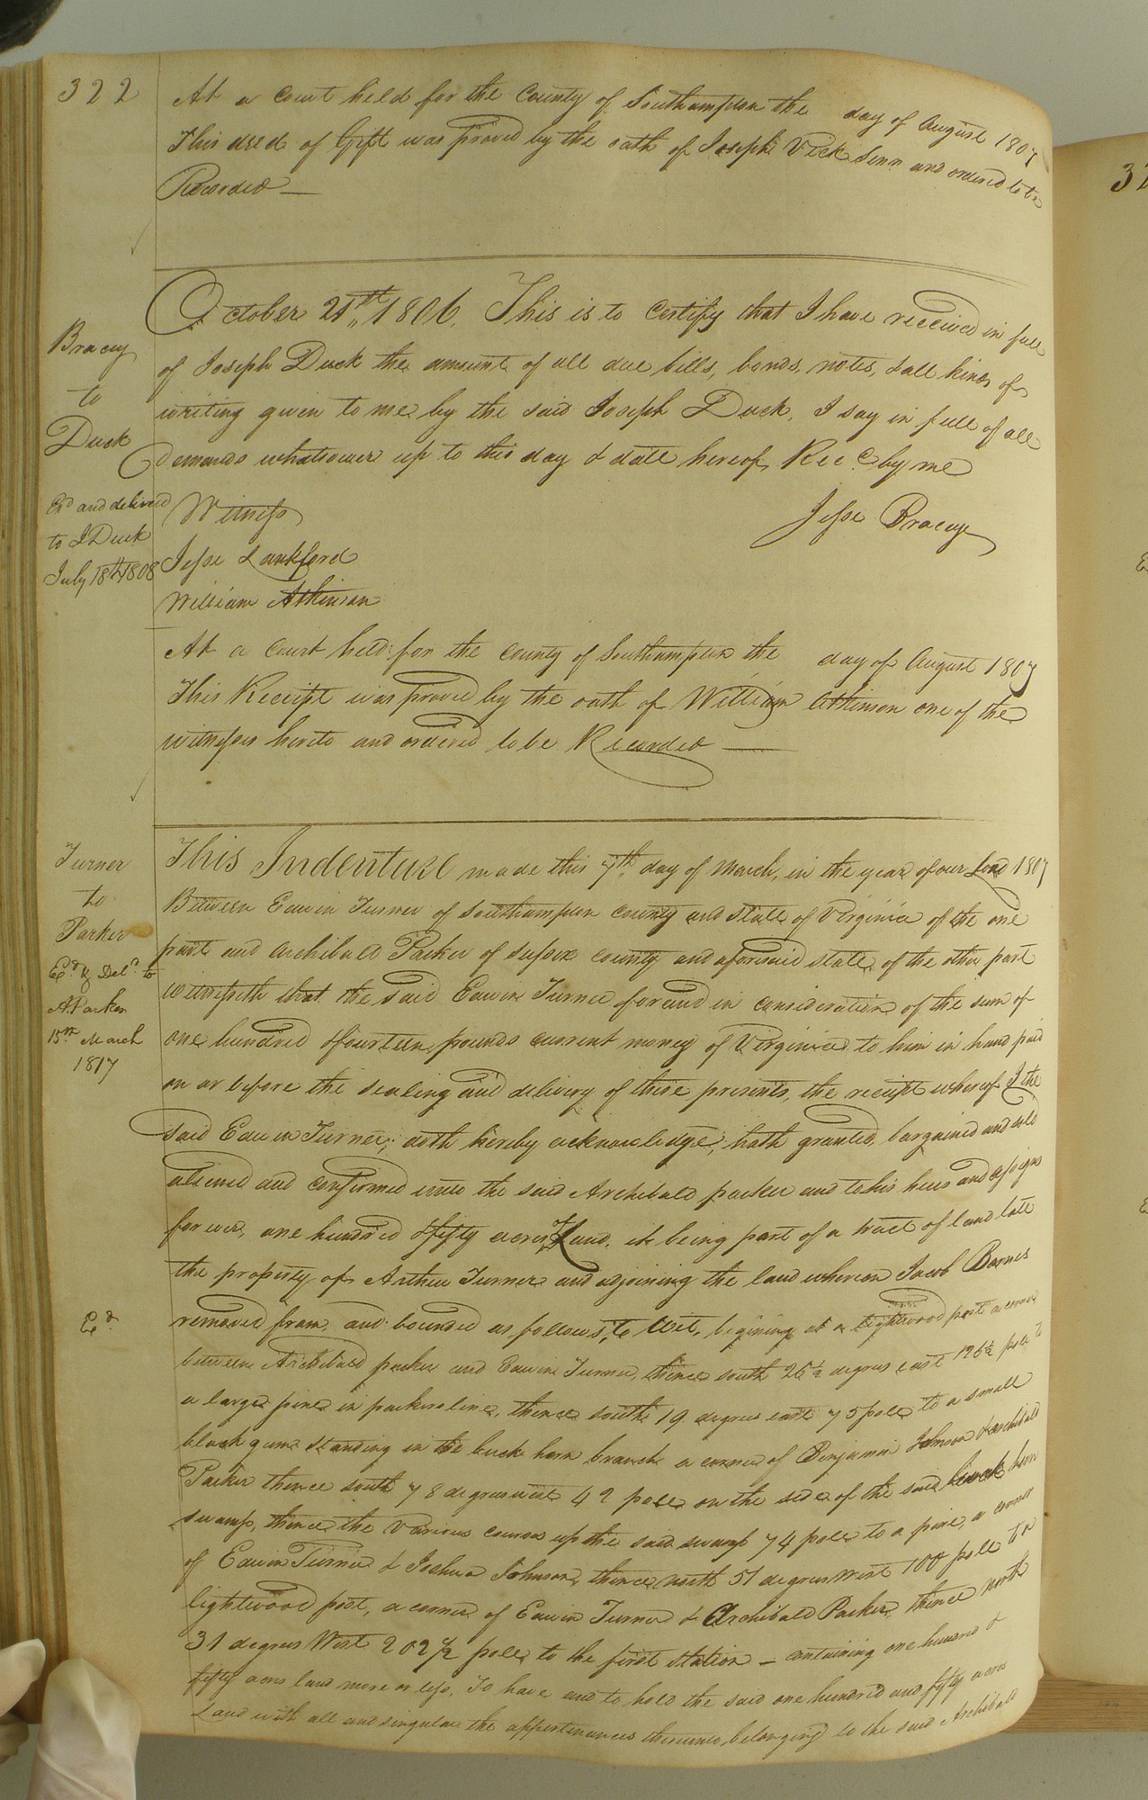 322
At a Court held for the County of Southampton the day of August 1807
This deed of Gift was proved by the oath of Joseph Vick Senr and ordered to be
Recorded
Bracey
to
Duck
Exd and delivered
to J Duck
July 18th 1808
October 21st 1806. This is to certify that I have received in full
of Joseph Duck the amount of all due bills, bonds, notes, & all kinds of
writing given to me by the said Joseph Duck. I say in full of all
demands whatsoever up to this day & date hereof, Recd by me
Witness
Jesse Bracey
Jesse Lankford
William Atkinson
At a Court held for the County of Southampton the day of August 1807
This Receipt was proved by the oath of William Atkinson one of the
witnesses hereto and ordered to be Recorded
Turner
to
Parker
Exd & Deld to
A. Parker
15th March
1817
Exd
This Indenture made this 7th day of March, in the year of our Lord 1807
Between Edwin Turner of Southampton County and State of Virginia of the one
part and Archibald Parker of Sussex county and aforesaid state of the other part
witnesseth that the said Edwin Turner for and in consideration of the sum of
one hundred & fourteen pounds current money of Virginia to him in hand paid
on or before the sealing and delivery of these presents, the receipt whereof I the
said Edwin Turner, doth hereby acknowledge, hath granted, bargained and sold
aliened and confirmed unto the said Archibald parker and to his heirs and assigns
forever, one hundred & fifty acres of Land, it being part of a tract of land late
the property of Arthur Turner and adjoining the land whereon Jacob Barnes
removed from, and bounded as follows, to Wit, begining at a lightwood post a corner
between Archibald parker and Edwin Turner, thence south 26½ degrees east 126½ pole to
a large pine in parkers line, thence south 19 degrees east 75 pole to a small
black gum standing in the buck horn branch a corner of Benjamin Johnson & Archibald
Parker thence south 78 degrees west 42 pole on the side of the said horn
swamp, thence the various courses up the said swamp 74 pole to a pine, a corner
of Edwin Turner & Joshua Johnson, thence north 51 degrees West 100 pole to a
lightwood post, a corner of Edwin Turner & Archibald Parker thence north
31 degrees West 202½ pole to the first station — containing one hundred &
fifty acres land more or less, To have and to hold the said one hundred and fifty acres
Land with all and singular the appertenances thereunto belonging to the said Archibald